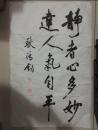 静者心多妙
達人氣自平